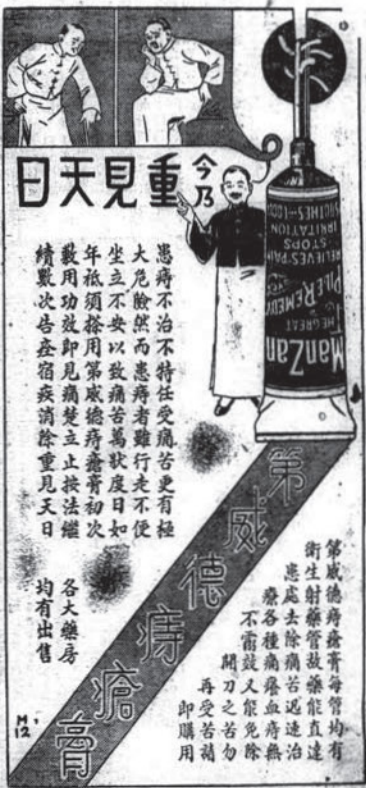 今乃重見天日
ManZan
THE GREAT
PILE REMEDY
RELIEVES PAIN
STOPS
IRRITATION
SOOTHES-COOLS
患痔不治不特任受痛苦更有極
大危險然而患痔者雖行走不便
坐立不安以致痛苦萬狀度日如
年祗須搽用第威德痔瘡膏初次
敷用功效即見痛楚立止按法繼
續數次告痊宿疾消除重見天日
第威德痔瘡膏
第威德痔瘡膏每管均有
衛生射藥管故藥能直達
患處去除痛苦迅速治
療各種痛癢血痔無
不又能免除
開刀之苦勿
再受苦請
即購用
各大藥房
均有出售
M.
12.